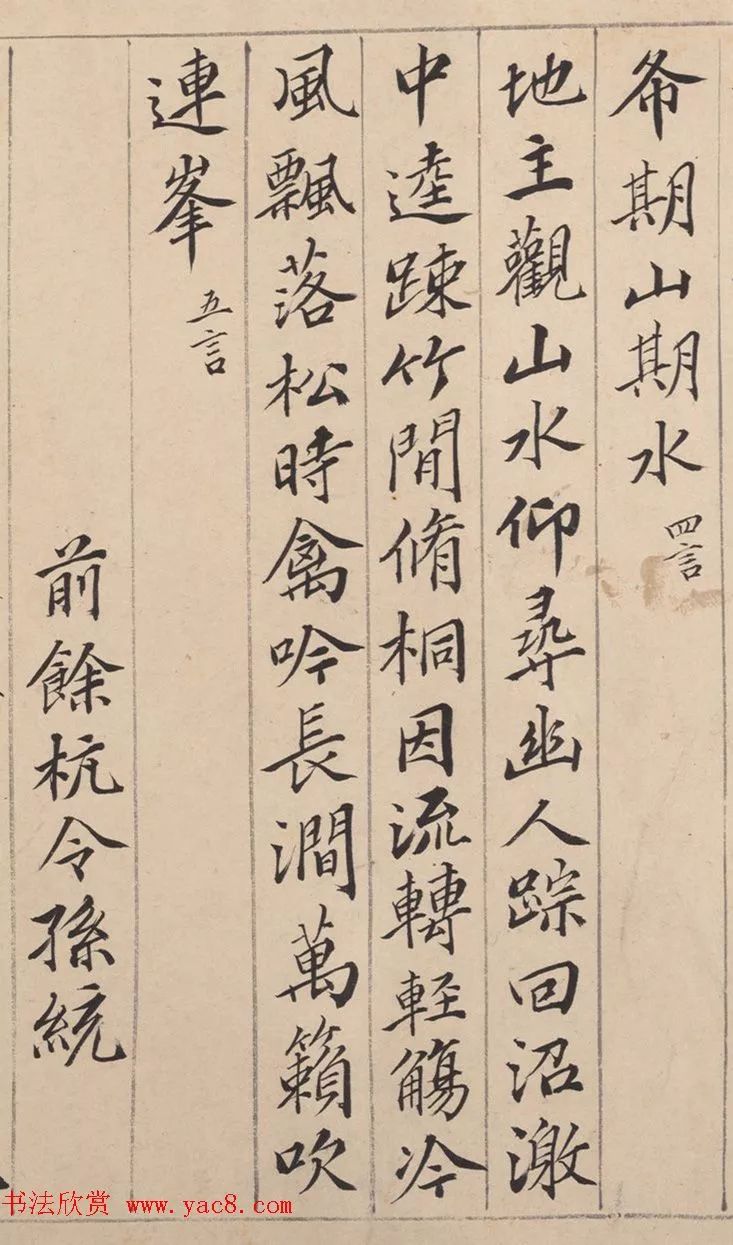 希期山期水 四言
地主觀山水仰尋幽人踪回沼激
中逵踈竹間脩桐因流轉軽觴冷
風飄落松時禽吟長澗萬籟吹
連峯 五言
前餘杭令孫統
书法欣赏 www.yac8.com